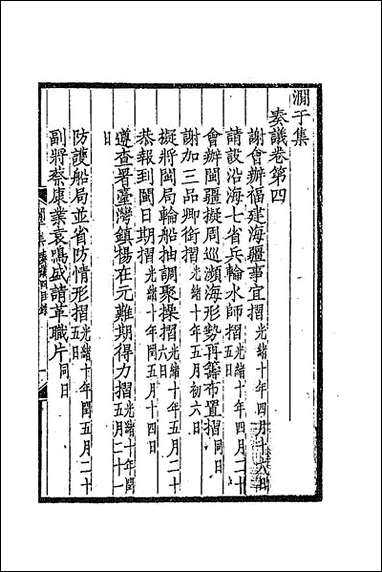 澗于集
奏議卷第四
謝會辦福建海疆事宜摺光緒十年四月十六日
請設沿海七省兵輪水師摺光緒十年四月二十五日
會辦閩疆擬周巡瀕海形勢再籌布置摺同日
謝加三品卿銜摺光緒十年五月初六日
擬將閩局輪船抽調聚操摺光緒十年五月二十六日
恭報到閩日期摺光緒十年閏五月十四日
遵查署臺灣鎮楊在元難期得力摺光緒十年閏五月二十一日
防護船局並省防情形摺光緒十年閏五月二十五日
副將蔡康業袁鳴盛請革職片同日